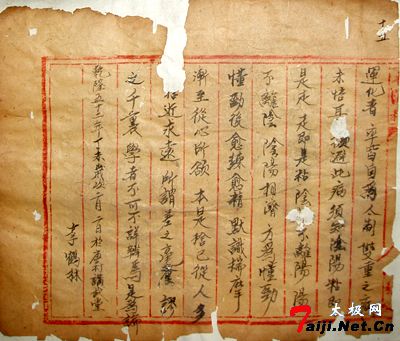 十五
運化者率皆自為人制雙重之
未悟耳避此病須知陰陽粘即
是走走即是粘陰離陽陽
不離陰陰陽相濟方為懂勁
懂勁後愈練愈精默識揣摩
漸至從心所欲本是捨己從人多
近求遠所謂差之毫釐謬
之千里學者不可不詳辨焉是為論
乾隆五十三年丁未歲次二月二日於唐村講武堂
李鶴林
太极网
7aiji.Net.Cn